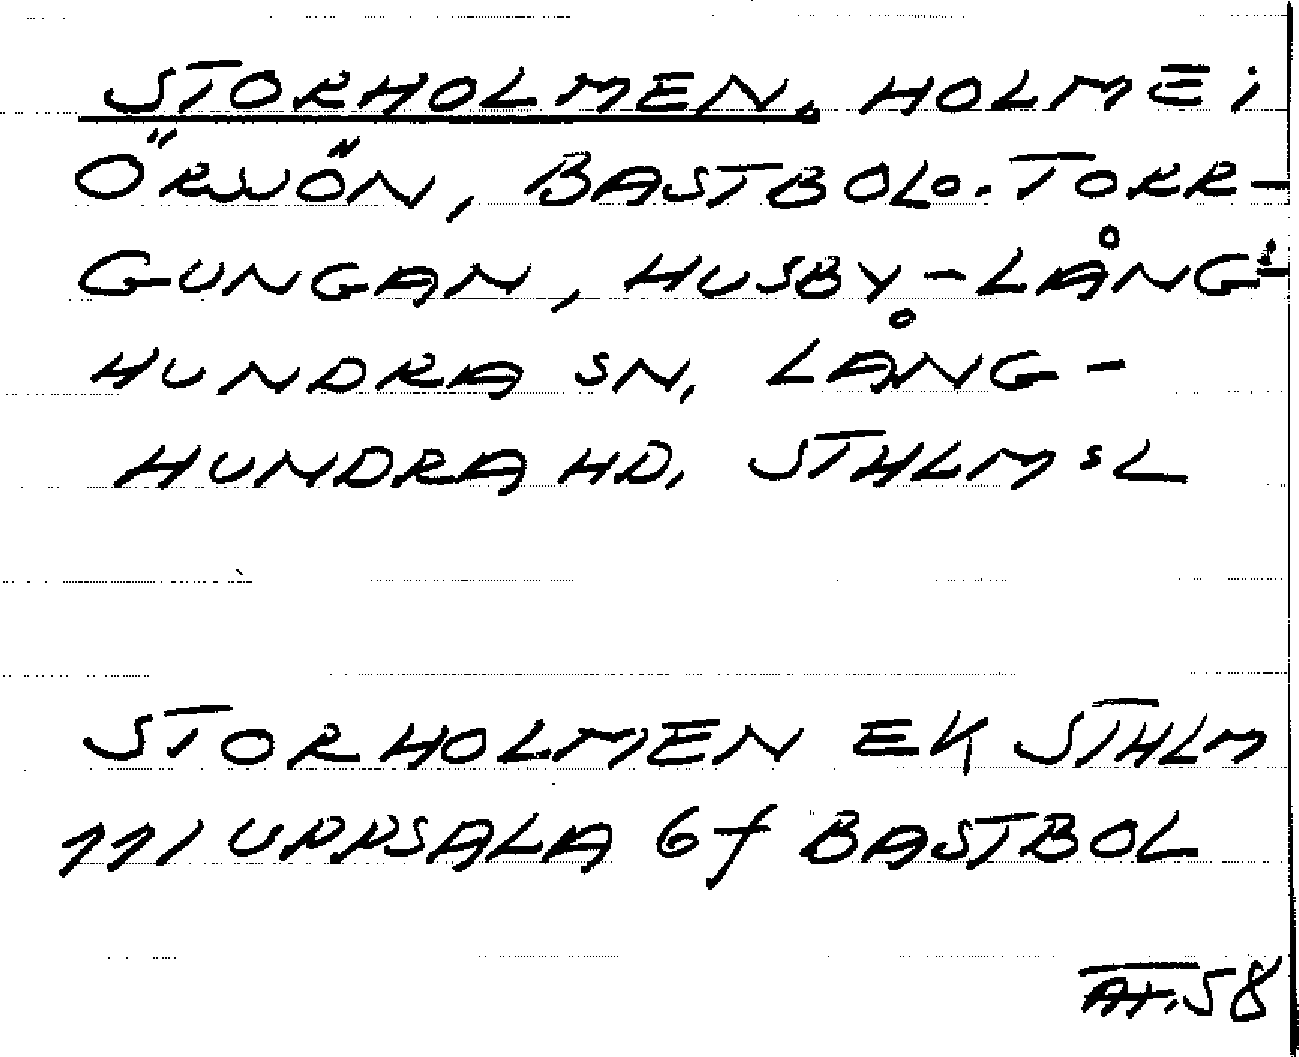 STORHOLMEN, HOLME i
ÖRSJÖN, BASTBOL o. TORR-
GUNGAN, HUSBY-LÅNG-
HUNDRA SN, LÅNG-
HUNDRA HD, STHLMS L
STORHOLMEN EK STHLM
111 UPPSALA 6f BASTBOL
58